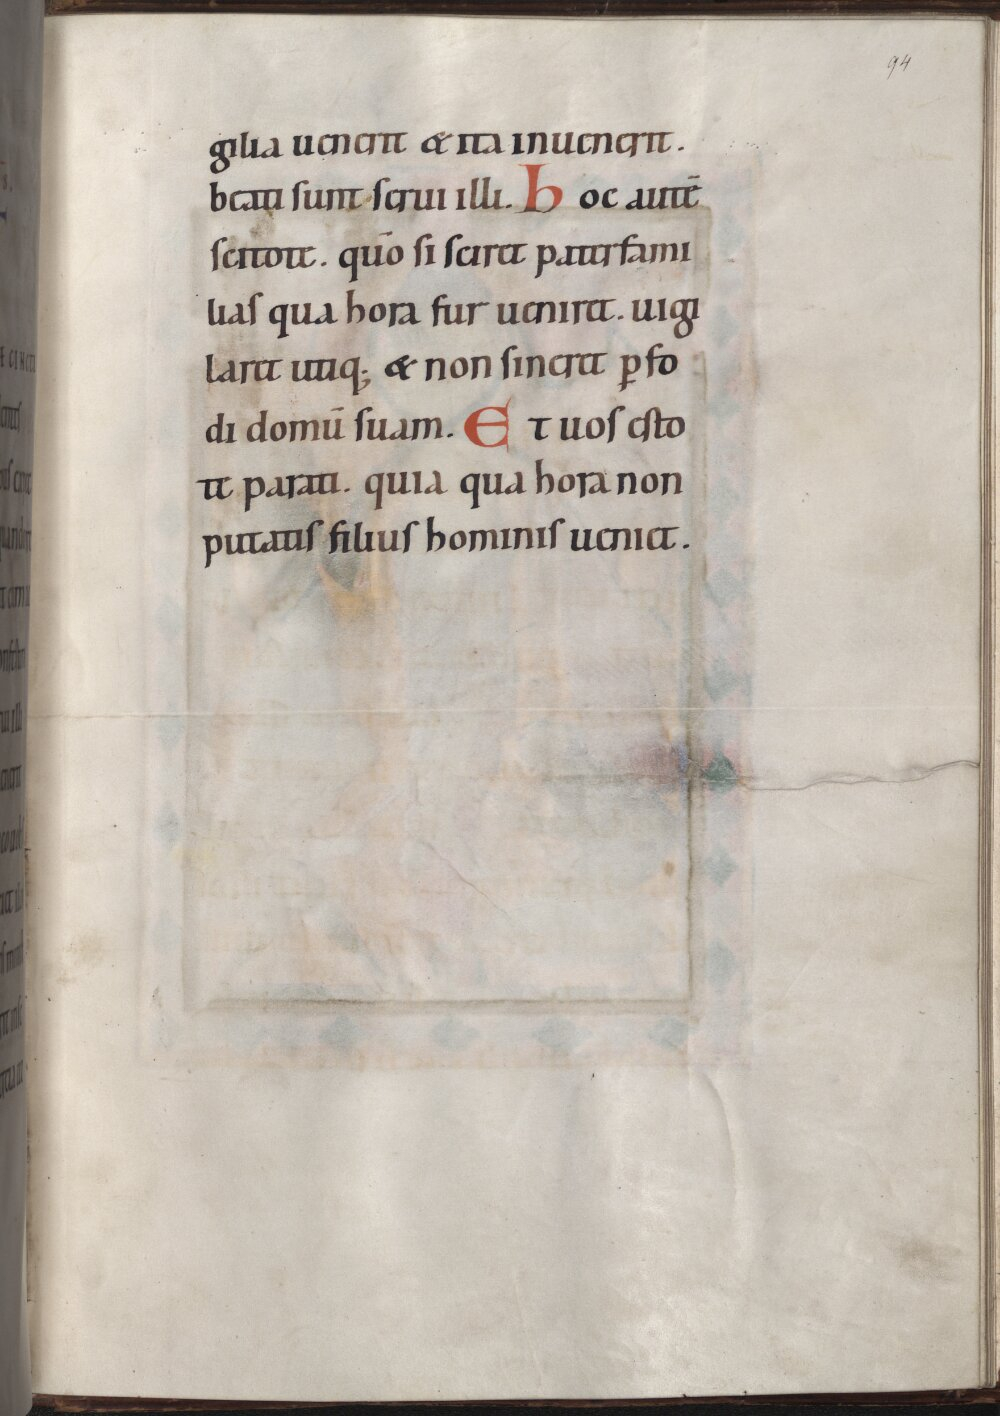 94
gilia uenerit & ita inuenerit.
beati sunt serui illi. hoc autē
scitote. quō si sciret paterfami
lias qua hora fur ueniret. uigi
laret utiq; & non sineret ꝑfo
di domū suam. Et uos esto
te parati. quia qua hora non
putatis filius hominis ueniet.